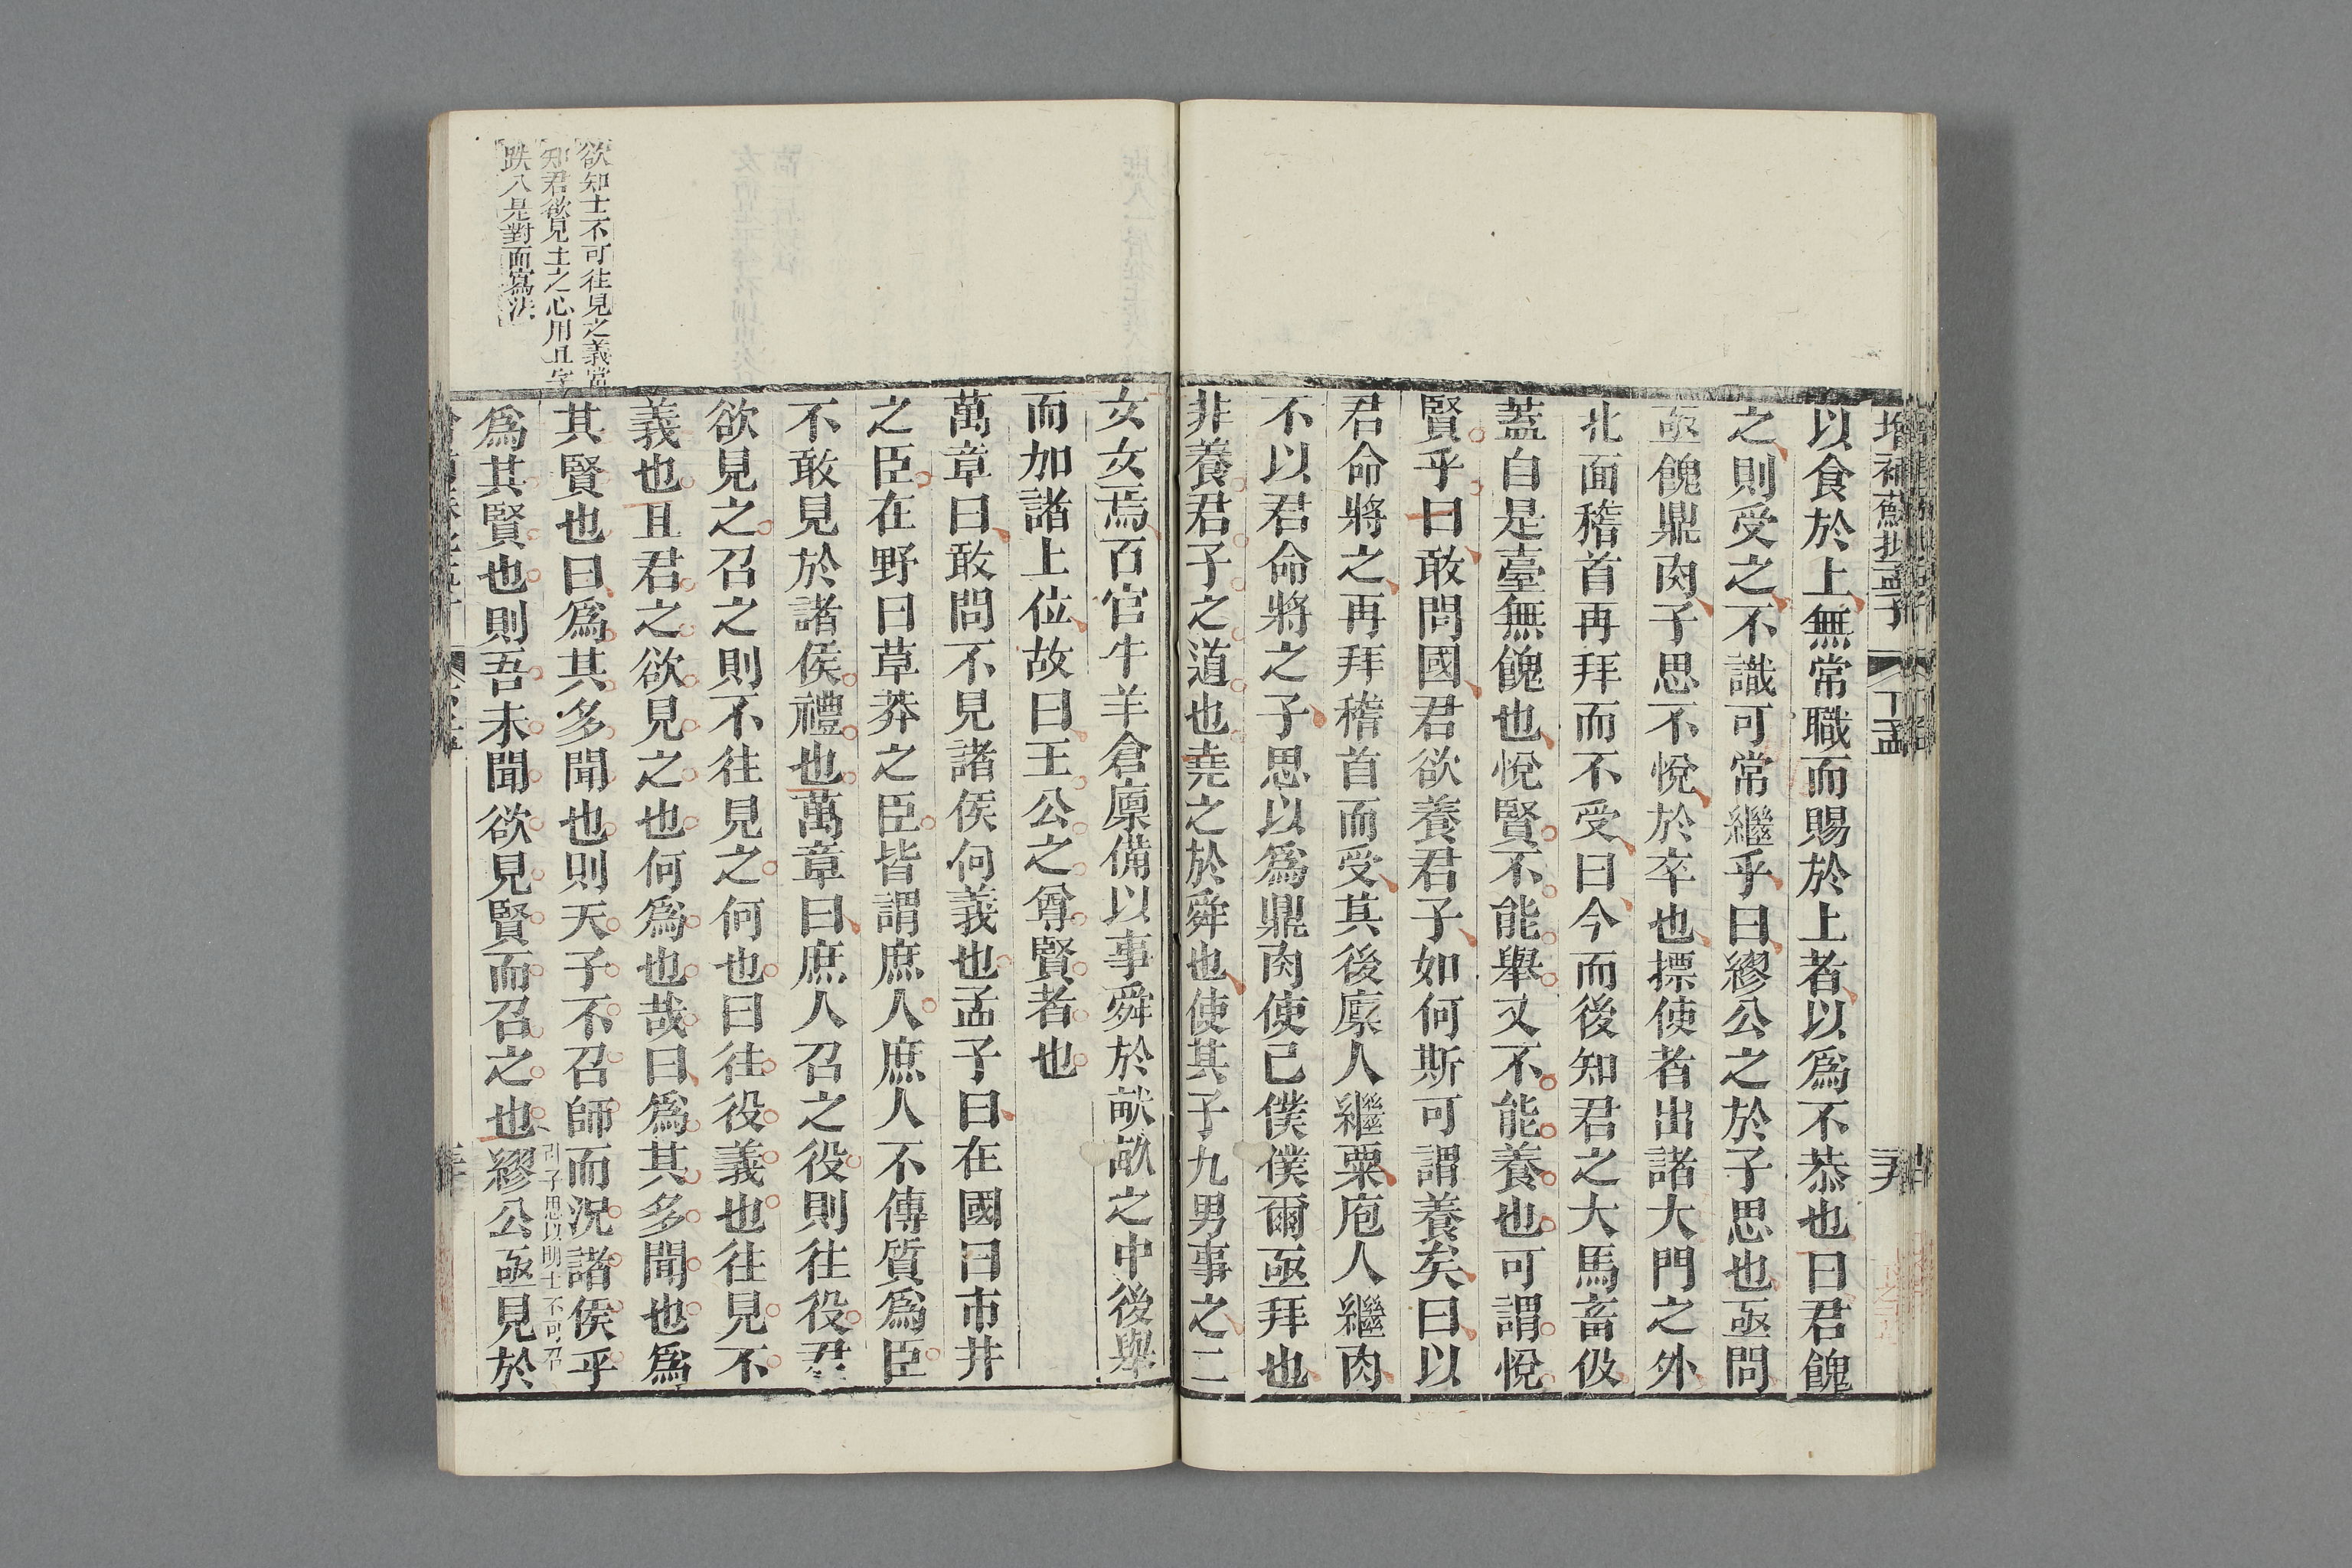 增補蘇批孟子 下孟
以食於上無常職而賜於上者以爲不恭也曰君餽
之則受之不識可常繼乎曰繆公之於子思也亟問
亟餽鼎肉子思不悅於卒也摽使者出諸大門之外
北面稽首再拜而不受曰今而後知君之犬馬畜伋
蓋自是臺無餽也悅賢不能舉又不能養也可謂悅
賢乎曰敢問國君欲養君子如何斯可謂養矣曰以
君命將之再拜稽首而受其後廩人繼粟庖人繼肉
不以君命將之子思以爲鼎肉使已僕僕爾亟拜也
非養君子之道也堯之於舜也使其子九男事之二
女女焉百官牛羊倉廩備以事舜於畎畝之中後舉
而加諸上位故曰王公之尊賢者也
萬章曰敢問不見諸侯何義也孟子曰在國曰市井
之臣在野曰草莽之臣皆謂庶人庶人不傳質爲臣
不敢見於諸侯禮也萬章曰庶人召之役則往役君
欲見之召之則不往見之何也曰往役義也往見不
義也且君之欲見之也何爲也哉曰爲其多聞也爲
其賢也曰爲其多聞也則天子不召師而況諸侯乎
爲其賢也則吾未聞欲見賢而召之也繆公亟見於
子思以明士不可召
欲知士不可往見之義當
知君欲見士之心用且字
跌入是對面寫法